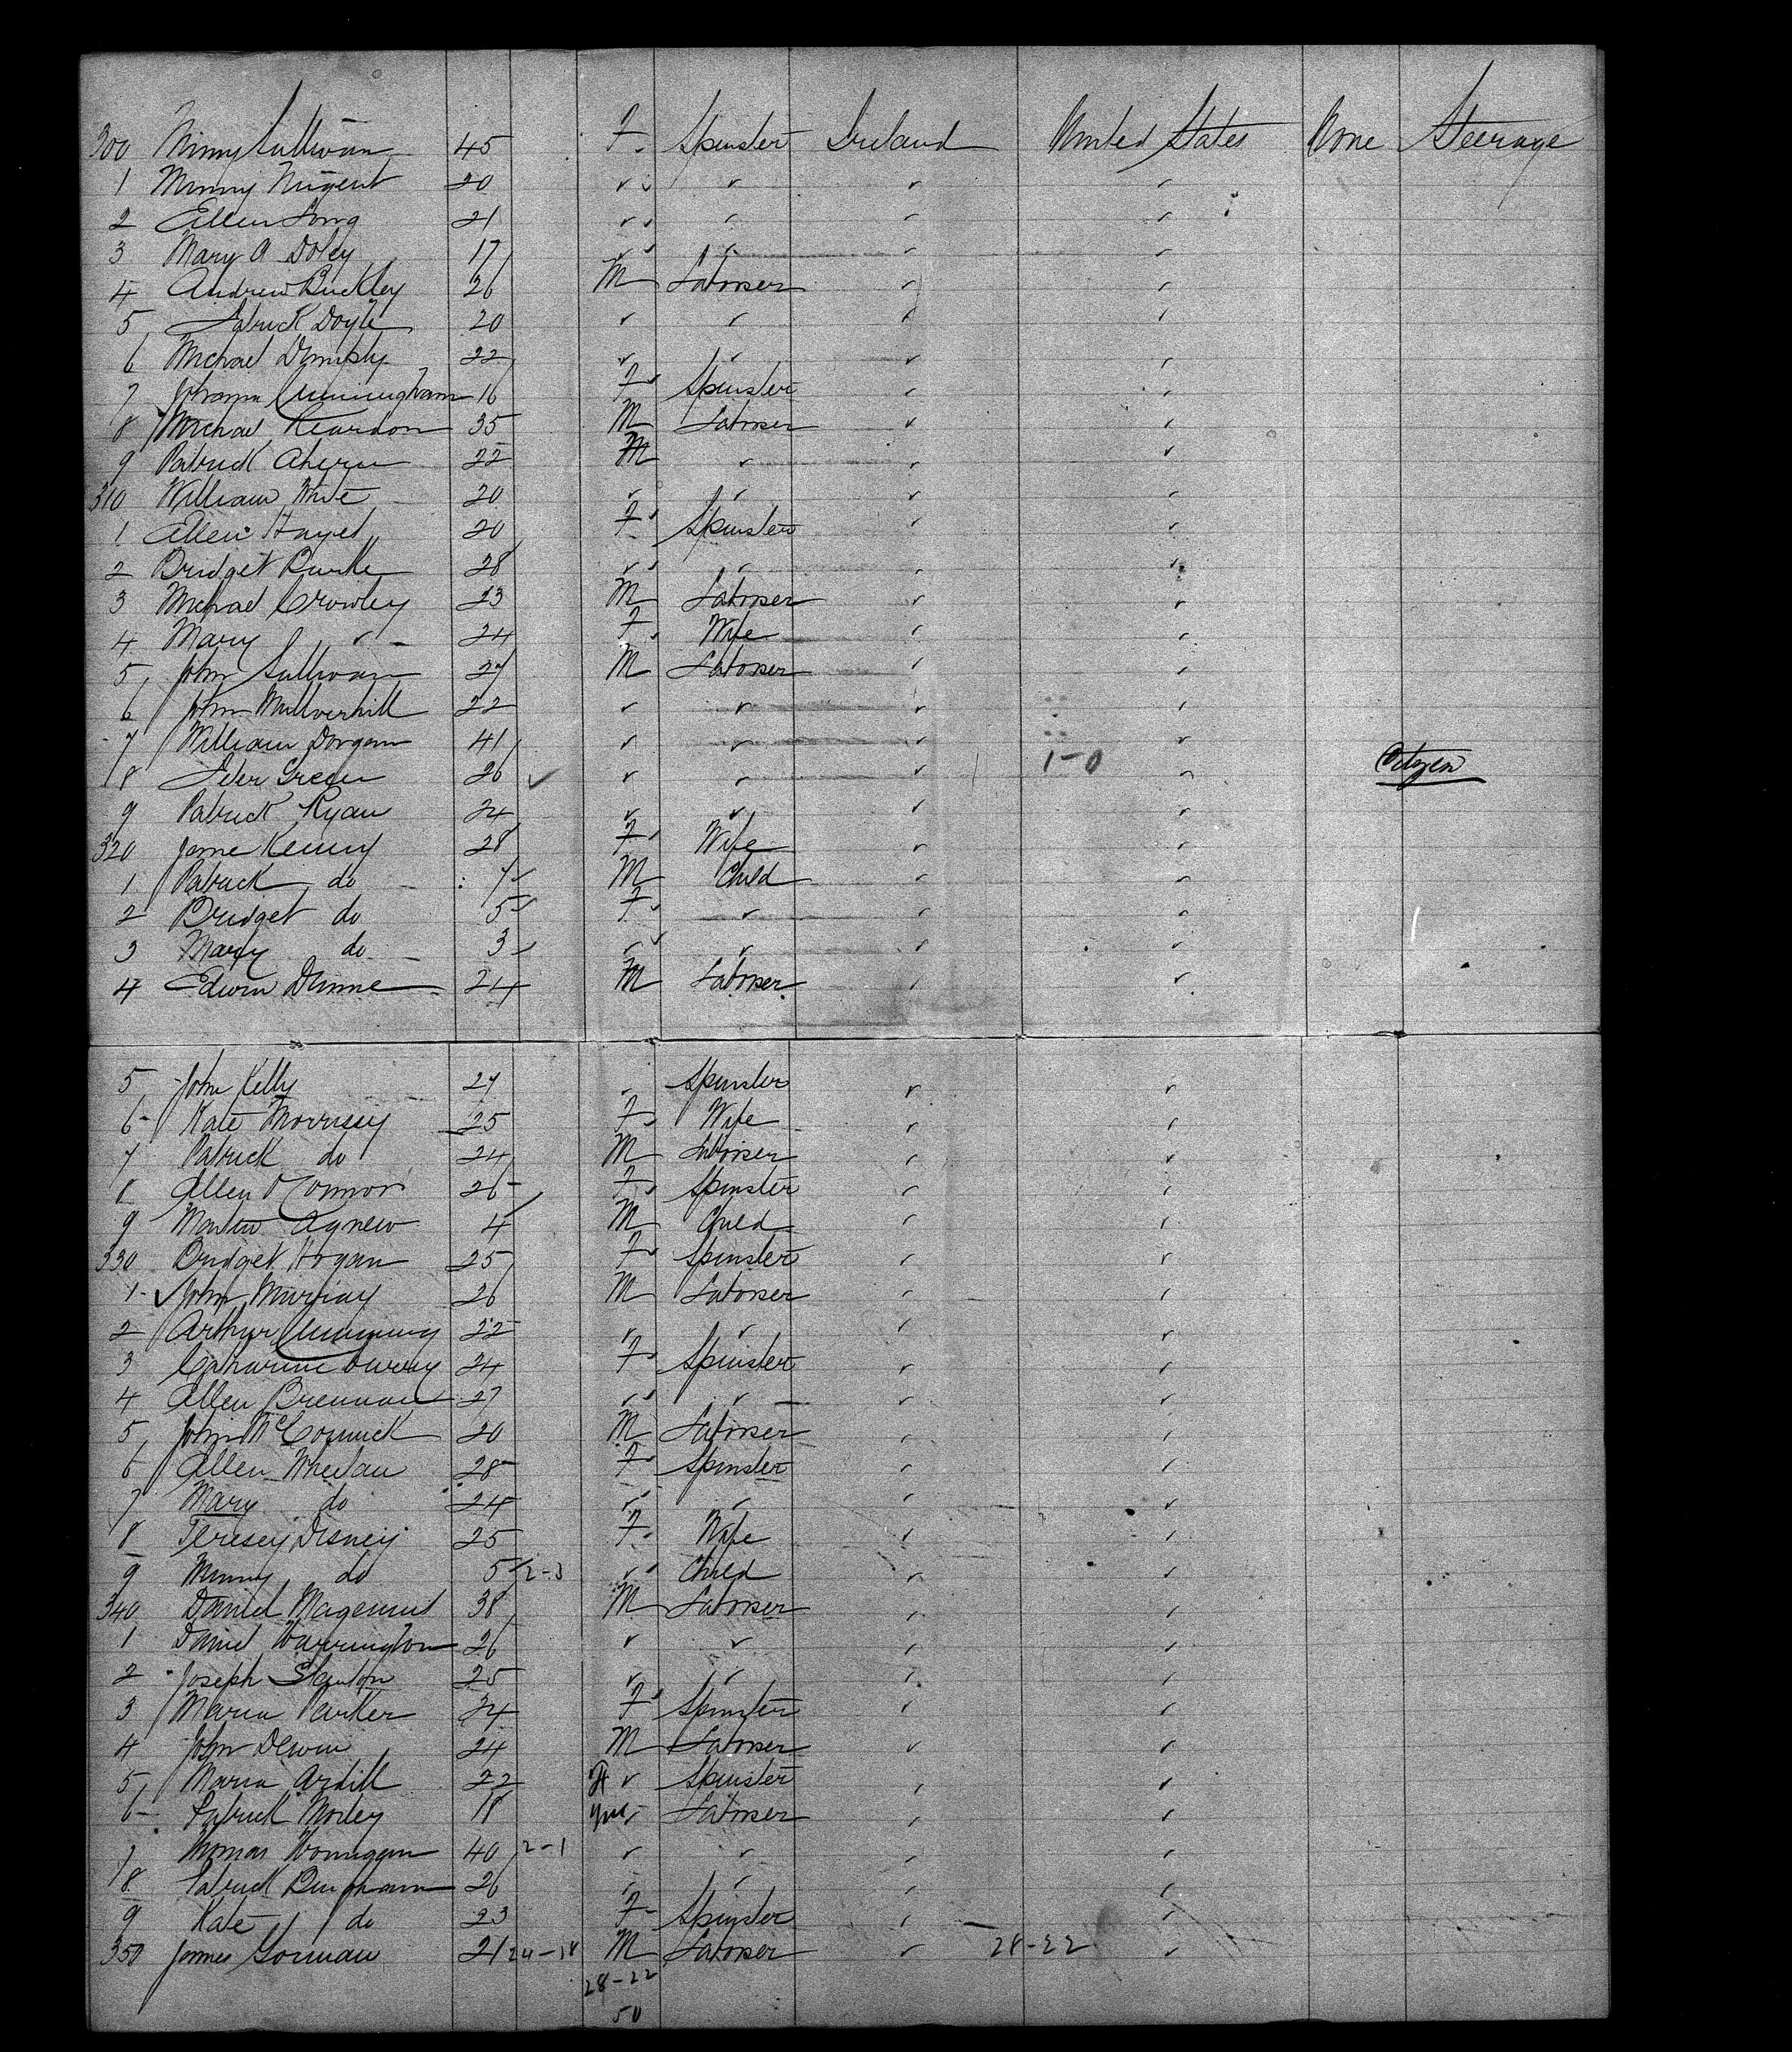 300 Minny Sullivan 45 F. Spinster Ireland United States None Steerage
1 Minny Nugent 20 " " " "
2 Ellen Long 21 " " " "
3 Mary A Doley 17 " " " "
4 Andrew Buckley 26 M Laborer " "
5 Patrick Doyle 20 " " " "
6 Michael 22 " " " "
7 Johanna Cunningham 16 F. Spinster " "
8 Michael Reardon 35 M Laborer " "
9 Patrick Ahern 22 M " " "
310 William 20 " " " "
1 Ellen Hayes 20 F. Spinster " "
2 Bridget Burke 28 " " " "
3 Michael Crowley 23 M Laborer " "
4 Mary " 24 F. Wife " "
5 John Sullivan 27 M Laborer " "
6 John Mulverhill 22 " " " "
7 William Dorgan 41 " " " "
8 Peter Green 26 ✓ " " " 1-0 " Citizen
9 Patrick Ryan 24 " " " "
320 Jane Kenny 28 F. Wife " "
1 Patrick do 7 M Child " "
2 Bridget do 5 F. " " "
3 Mary do 3 " " " "
4 Edwin Dunne 24 M Laborer " "
5 John Kelly 27 " Spinster " "
6 Kate Morrisey 25 F. Wife " "
7 Patrick do 24 M Laborer " "
8 Ellen O'Connor 26 F. Spinster " "
9 Martin Agnew 4 M Child " "
330 Bridget Hogan 25 F. Spinster " "
1 John Murray 26 M Laborer " "
2 Arthur 22 " " " "
3 Catharine 24 F. Spinster " "
4 Ellen Brennan 27 " " " "
5 John McCormick 20 M Laborer " "
6 Ellen Whelan 28 F Spinster " "
7 Mary do 24 " " " "
8 Teresey Disney 25 F. Wife " "
9 Minny do 5 2-3 " Child " "
340 Daniel 38 M Laborer " "
1 Daniel Warrington 26 " " " "
2 Joseph Stanton 25 " " " "
3 Maria Parker 24 F. Spinster " "
4 John Devin 24 M Laborer " "
5 Maria Ardill 22 F " Spinster " "
6 Patrick Morley 18 Laborer " "
7 Thomas 40 2-1 " " " "
8 Patrick Bingham 26 " " " "
9 Kate do 23 F Spinster " "
350 James Gorman 21 24-18 M Laborer " 28-22 "
28-22
50